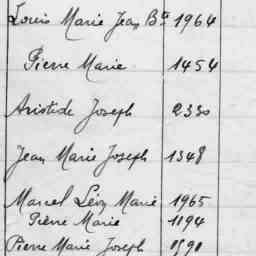 Louis Marie Jean Bte 1964
Pierre Marie 1454
Aristide Joseph 2330
Jean Marie Joseph 1348
Marcel Lévy Marie 1965
Pierre Marie 1194
Pierre Marie Joseph